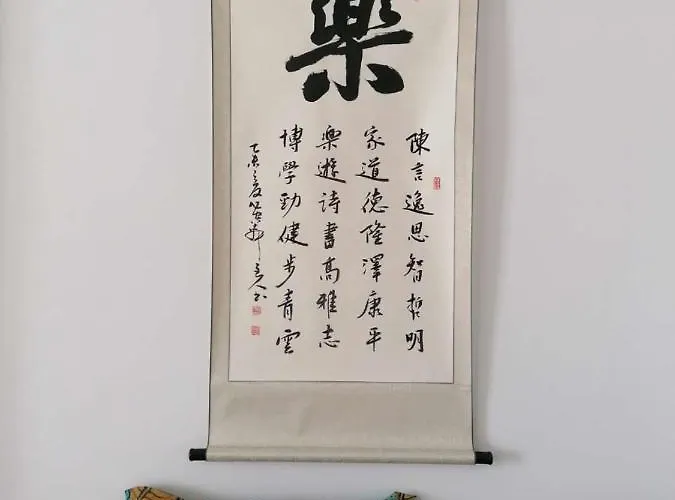 樂
陳言逸思智哲明
家道德隆澤康平
樂遊詩書高雅志
博學勁健步青雲
乙未之夏